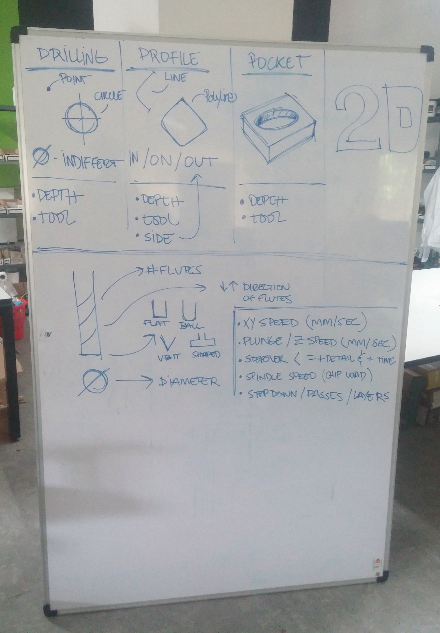 DRILLING
POINT
CIRCLE
Ø - INDIFFERT
• DEPTH
• TOOL
PROFILE
LINE
Polyline
IN/ON/OUT
• DEPTH
• TOOL
• SIDE
POCKET
• DEPTH
• TOOL
2D
# FLUTES
↓↑ DIRECTION
OF FLUTES
FLAT BALL
V BIT SHAPED
Ø → DIAMETER
• XY SPEED (MM/SEC)
• PLUNGE / Z SPEED (MM/SEC)
• STEPOVER < = + DETAIL & + TIME
• SPINDLE SPEED (CHIP LOAD)
• STEPDOWN / PASSES / LAYERS